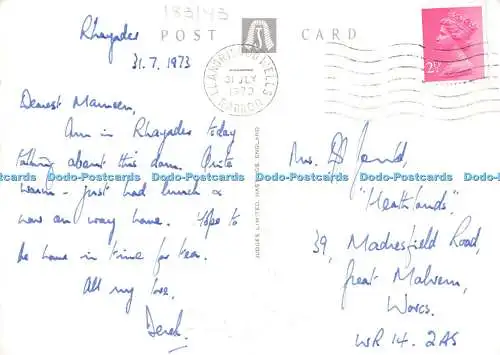 183143
POST CARD
Rhayader
31.7.1973
Dearest Maureen,
Am in Rhayader today
talking about this dam. Quite
warm - just had lunch &
now on way home. Hope to
be home in time for tea.
All my love,
Derek
JUDGES LIMITED, HASTINGS, ENGLAND
LLANDRINDOD WELLS
31 JLY
1973
RADNOR
2½
Mrs.
"Heathlands",
39, Madresfield Road,
Great Malvern,
Worcs.
WR14. 2AS
Dodo-Postcards Dodo-Postcards Dodo-Postcards Dodo-Postcards Dodo-Postcards